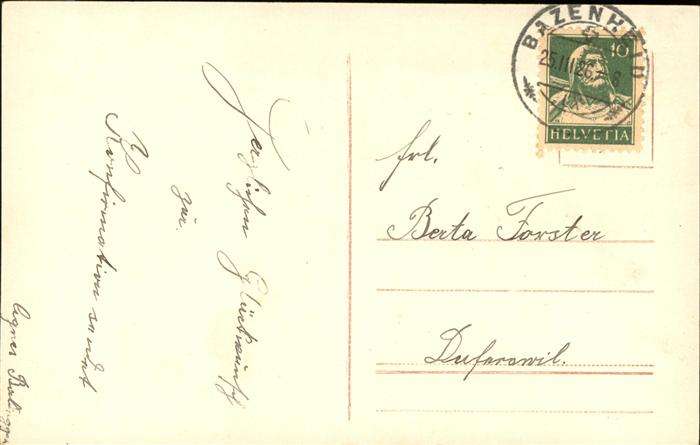 Herzlichen Glückwunsch
zur
Konfirmation sendet
Agnes
BAZENHEID
25.III.26.-8
10
HELVETIA
Frl.
Berta Forster
Duferswil.